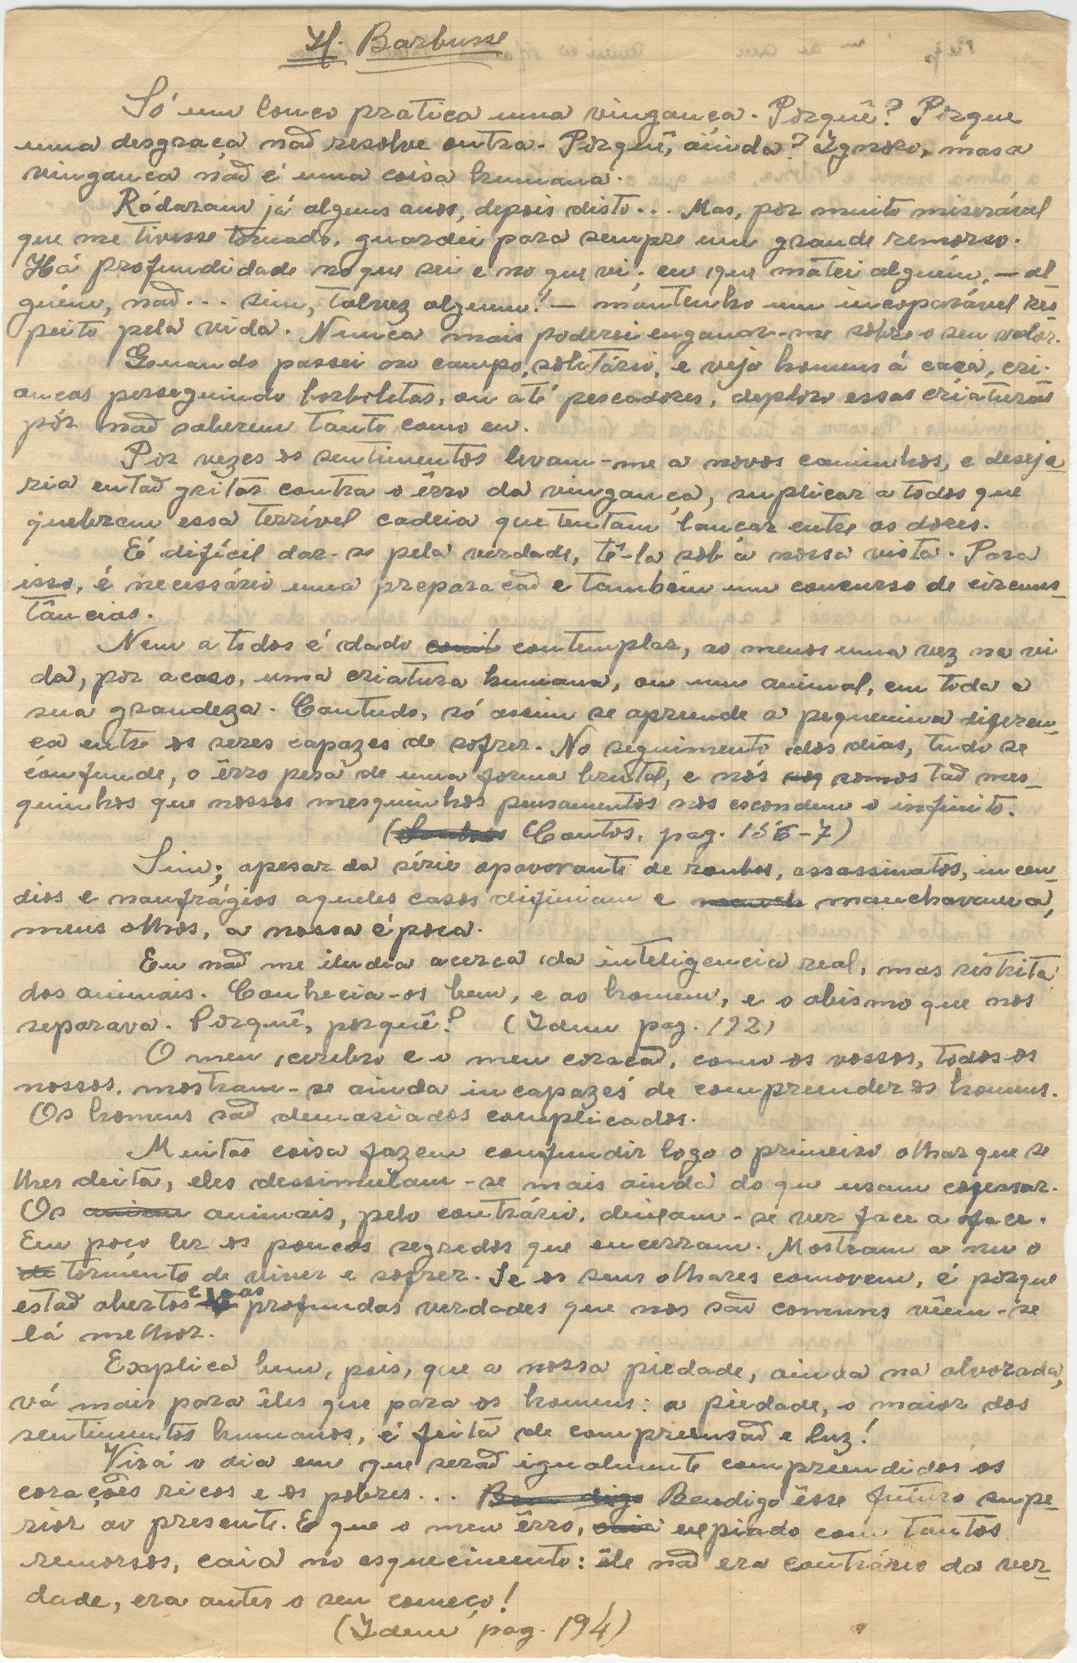 H. Barbusse
Só um louco pratica uma vingança. Porquê? Porque
uma desgraça não resolve outra. Porquê, ainda? Ignoro, mas a
vingança não é uma coisa humana.
Ródaram já alguns anos, depois disto... Mas, por muito miserável
que me tivesse tornado, guardei para sempre um grande remorso.
Há profundidade no que sei e no que vi. eu que matei alguém, — al
guém, não... sim, talvez algum! — mantenho um incoparável res
peito pela vida. Nunca mais poderei enganar-me sobre o seu valor.
Quando passei no campo, solitário, e vejo homens á caça, cri-
anças perseguindo borboletas, ou até pescadores, deploro essas criaturas
pór não saberem tanto como eu.
Por vezes os sentimentos levam-me a novos caminhos, e deseja
ria então gritar contra o êrro da vingança, suplicar a todos que
quebrem essa terrível cadeia que tentam lançar entre as dores.
É difícil dar-se pela verdade, tê-la sob a nossa vista. Para
isso, é necessário uma preparação e tambêm um concurso de circuns-
tâncias.
Nem a todos é dado contemplar, ao menos uma vez na vi
da, por acaso, uma criatura humana, ou um animal, em toda a
sua grandeza. Contudo, só assim se aprende a pequenina diferen-
ça entre os seres capazes de sofrer. No seguimento dos dias, tudo se
confunde, o êrro pesa de uma forma brutal, e nós somos tão mes-
quinhos que nossos mesquinhos pensamentos nos escondem o infinito.
(Contos, pag. 156-7)
Sim; apesar da série apavorante de roubos, assassinatos, incen-
dios e naufrágios aqueles casos difiniam e manchavam a,
meus olhos, a nossa época.
Eu não me iludia acerca da inteligencia real, mas restrita
dos animais. Conhecia-os bem, e ao homem, e o abismo que nos
separava. Porquê, porquê? (Idem pag. 192)
O meu cerebro e o meu coração, como os vossos, todos os
nossos, mostram-se ainda incapazes de compreender os homens.
Os homens são demasiados complicados.
Muitas coisa fazem confundir logo o primeiro olhar que se
lhes deita, eles dessimulam-se mais ainda do que usam confessar.
Os animais, pelo contrário, deixam-se ver face a face.
Eu posso ler os poucos segredos que encerram. Mostram a nu o
tormento de viver e sofrer. Se os seus olhares comovem, é porque
estão abertos e as profundas verdades que nos são comuns vêem-se
lá melhor.
Explica bem, pois, que a nossa piedade, ainda na alvorada,
vá mais para êles que para os homens: a piedade, o maior dos
sentimentos humanos, é feita de compreensão e luz!
Virá o dia em que serão igualmente compreendidos os
corações ricos e os pobres... Bendigo êsse futuro supe-
rior ao presente. E que o meu êrro, expiado com tantos
remorsos, caia no esquecimento: êle não era contrário da ver-
dade, era antes o seu começo!
(Idem, pag. 194)